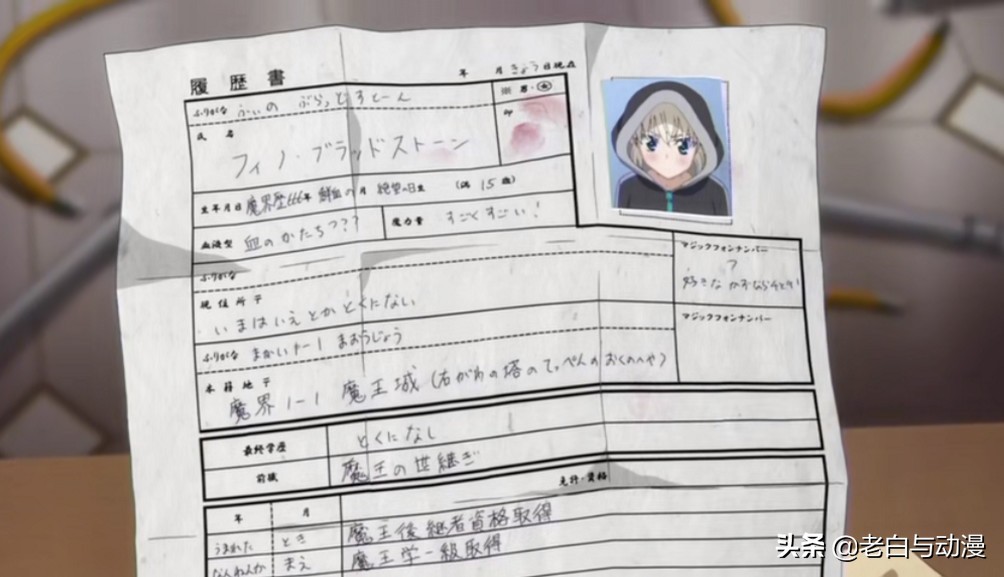 履歴書
年 月 きょう日現在
ふりがな ふぃの ぶらっどすとーん
男・女
印
氏名
フィノ・ブラッドストーン
生年月日 魔界歴666年 鮮血の月 絶望の日生 (満 15 歳)
血液型 血のかたちっ???
魔力量 すごくすごい!
マジックフォンナンバー
?
好きなかずなら
ふりがな
現住所 〒
いまはいえとかとくにない
マジックフォンナンバー
ふりがな まかい1ー1 まおうじょう
本籍地 〒
魔界1ー1 魔王城(右がわの塔のてっぺんのおくのへや)
最終学歴 とくになし
前職 魔王の世継ぎ
免許・資格
年 月
うまれた とき 魔王後継者資格取得
なんねんか まえ 魔王学一級取得
头条 @老白与动漫